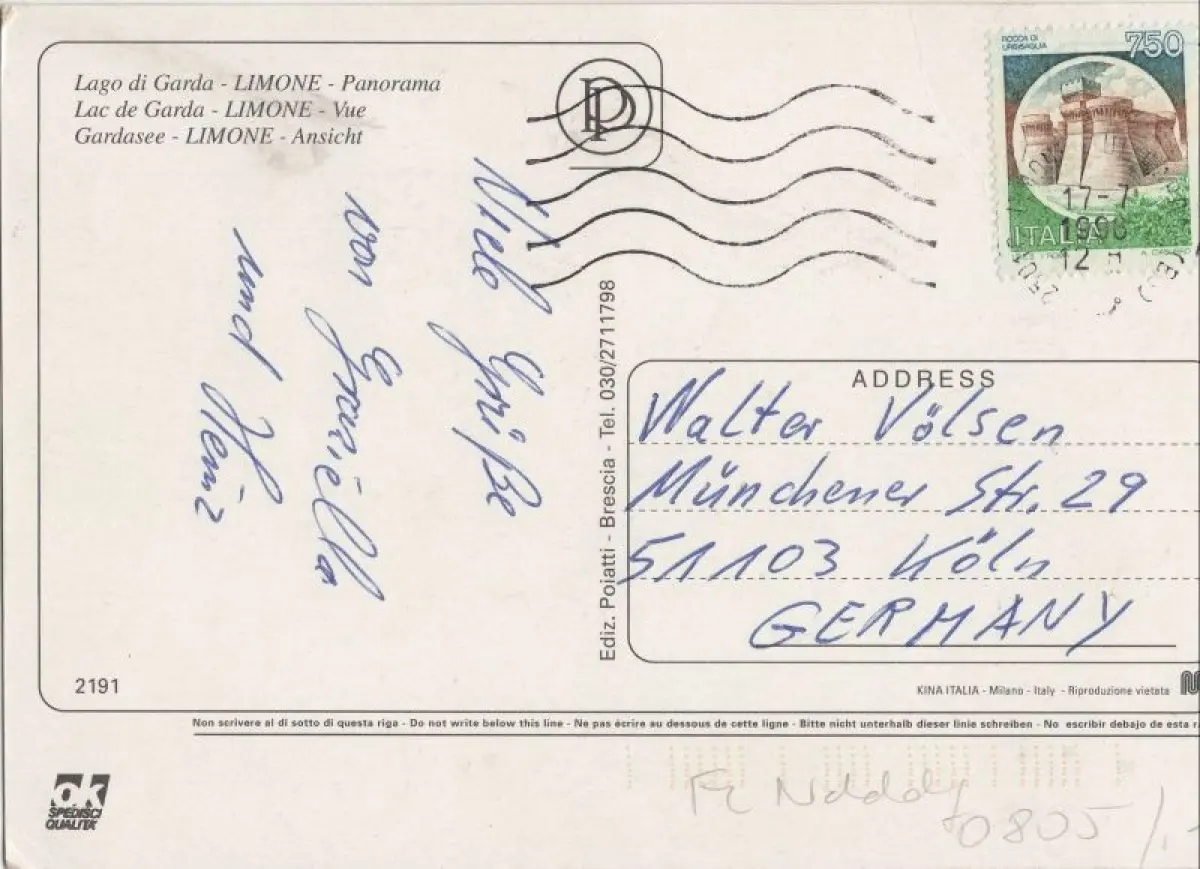 Lago di Garda - LIMONE - Panorama
Lac de Garda - LIMONE - Vue
Gardasee - LIMONE - Ansicht
Viele Grüße
von Graziella
und Heinz
Ediz. Poiatti - Brescia - Tel. 030/2711798
ROCCA DI URBISAGLIA
750
ITALIA
17-7
1996
12
ADDRESS
Walter Völsen
Münchener Str. 29
51103 Köln
GERMANY
2191
KINA ITALIA - Milano - Italy - Riproduzione vietata
Non scrivere al di sotto di questa riga - Do not write below this line - Ne pas écrire au dessous de cette ligne - Bitte nicht unterhalb dieser linie schreiben - No escribir debajo de esta
ok
SPEDISCI
QUALITA'
0805